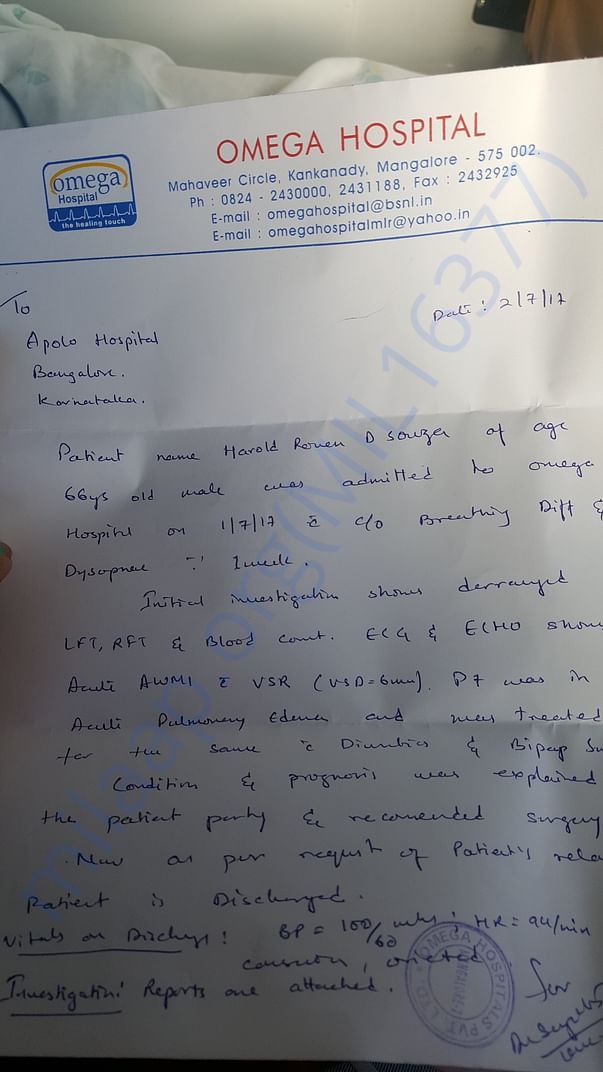 OMEGA HOSPITAL
Mahaveer Circle, Kankanady, Mangalore - 575 002.
Ph : 0824 - 2430000, 2431188, Fax : 2432925
E-mail : omegahospital@bsnl.in
E-mail : omegahospitalmlr@yahoo.in
omega
Hospital
the healing touch
To
Date : 2/7/17
Apolo Hospital
Bangalore.
Karnataka.
Patient name Harold Ronen D souza of age
66ys old male was admitted to omega
Hospital on 1/7/17 c̄ c/o Breathing Diff &
Dysopnea ∵ 1 week.
Initial investigation shows derranged
LFT, RFT & Blood count. ECG & ECHO show
Acute AWMI c̄ VSR (VSD=6mm). PT was in
Acute Pulmonary Edema and was treated
for the same c̄ Diuretics & Bipap Su
Condition & prognosis was explained
the patient party & recomended surgery
Now as per request of Patient's rela
patient is Discharged.
Vitals on Discharge : BP = 100/60 mmhg ; HR = 94/min
conscious, oriented
Investigation: Reports are attached.
for
OMEGA HOSPITALS PVT. LTD.
milaap.org(MIL16377)